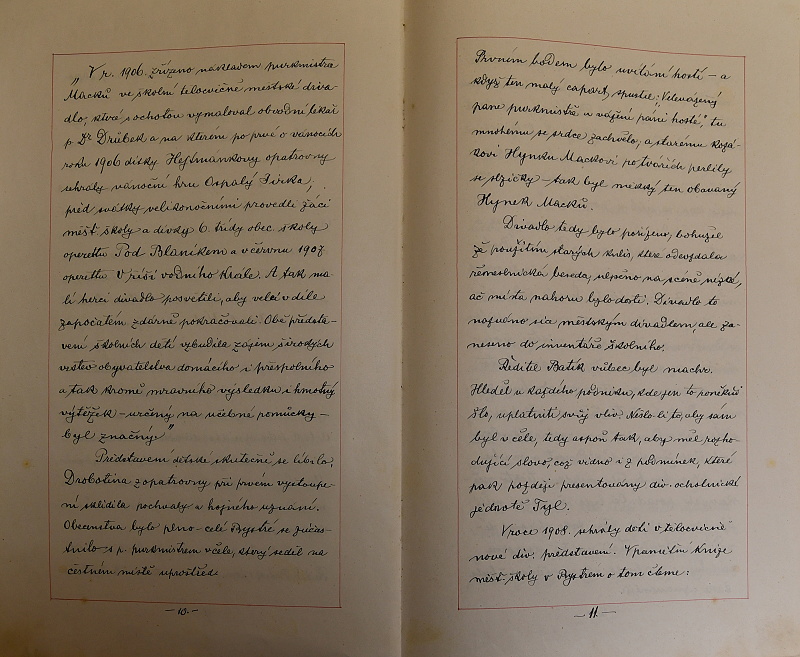 „V r. 1906. zřízeno nákladem purkmistra
Macků ve školní tělocvičně městské diva-
dlo, které s ochotou vymaloval obvodní lékař
p. Dr Drábek a na kterém po prvé o vánocích
roku 1906 dítky Hejtmánkovy opatrovny
sehrály vánoční hru Ospalý Jirka,
před svátky velikonočními provedli žáci
měšť. školy a dívky 6. třídy obec. školy
operettu Pod Blaníkem a v červnu 1907
operettu V říši vodního krále. A tak ma-
lí herci divadlo posvětili, aby velcí v díle
započatém zdárně pokračovali. Obě předsta-
vení školních dětí vzbudila zájem širokých
vrstev obyvatelstva domácího i přespolního
a tak kromě mravního výsledku i hmotný
výtěžek – určený na učebné pomůcky –
byl značný."
Představení dětské skutečně se líbilo.
Drobotina z opatrovny při prvém vystoupe-
ní sklidila pochvaly a hojného uznání.
Obecenstva bylo plno – celé Bystré se zúčas-
tnilo s p. purkmistrem v čele, který seděl na
čestném místě uprostřed.
– 10. –
Prvním bodem bylo uvítání hostí – a
když ten malý capart spustil: „Velevážený
pane purkmistře a vážení páni hosté," tu
mnohému se srdce zachvělo, a starému
Hynku Mackovi po tvářích perlily
se slzičky – tak byl měkký ten obávaný
Hynek Macků.
Divadlo tedy bylo pořízeno, bohužel
že použitím starých kulis, které odevzdala
řemeslnická beseda, na scéně nízké,
ač místa nahoru bylo dosti. Divadlo to
nazváno sice městským divadlem, ale za-
neseno do inventáře školního.
Ředitel Batík vůbec byl machr.
Hleděl u každého podniku, kde jen to poněkud
šlo, uplatniti svůj vliv. Nešlo-li to, aby sám
byl v čele, tedy aspoň tak, aby měl rozho-
dující slovo, což vidno i z podmínek, které
pak později presentovány div. ochotnické
jednotě Tyl.
V roce 1908. sehrály děti v tělocvičně
nové div. představení. V pamětní knize
měšť. školy v Bystrém o tom čteme:
– 11. –